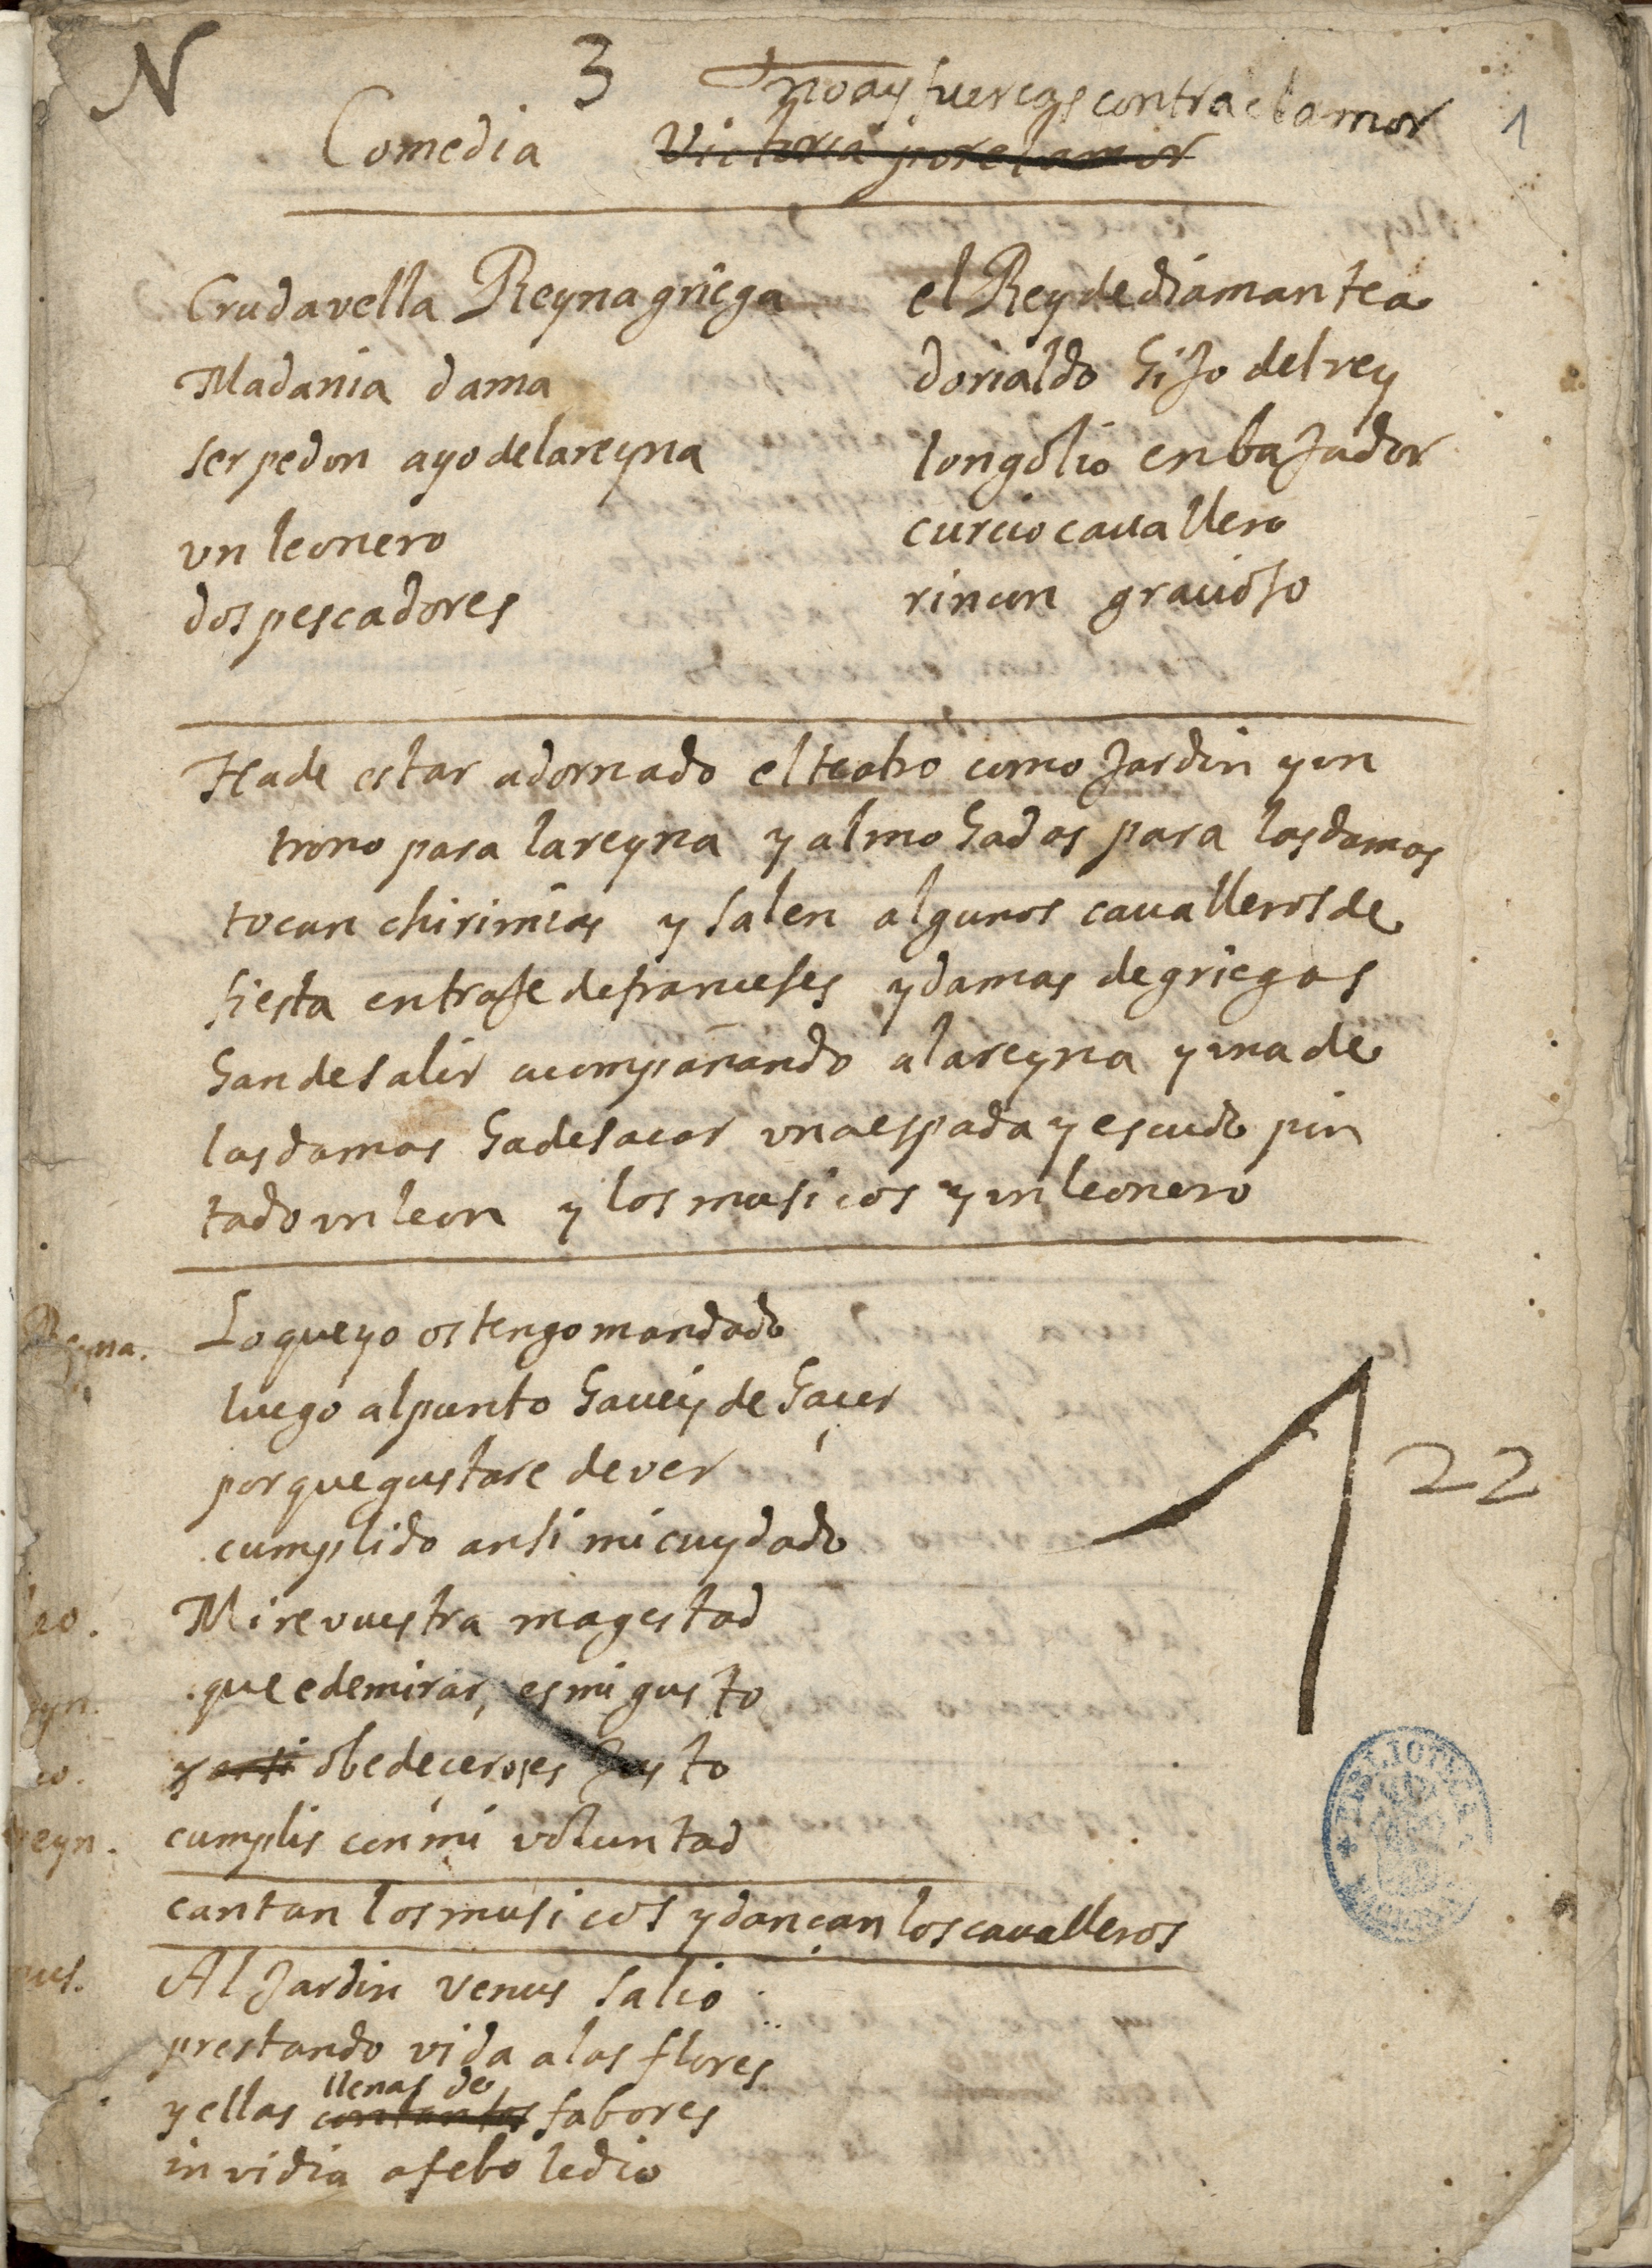 N 3 no ay fuerças contra el amor 1
Comedia Victoria por el amor
Crudavella Reyna griega
Madania dama
serpedon ayo de la reyna
vn leonero
dos pescadores
el Rey de diamantea
dorialdo hijo del rey
longolio enbajador
curcio cauallero
rincon gracioso
Ha de estar adornado el teatro como Jardin y un
trono para la reyna y almohadas para las damas
tocan chirimias y salen algunos caualleros de
fiesta en traje de franceses y damas de griegas
han de salir acompañando a la reyna y una de
las damas ha de sacar vna espada y escudo pin
tado vn leon y los musicos y un leonero
Reyna. Lo que yo os tengo mandado
luego al punto haueis de haçer
porque gustare de ver
cumplido ansi mi cuydado
leo. Mire vuestra magestad
eyn. que e de mirar, es mi gusto
eo. y ansi obedeçeros es justo
reyn. cumplis con mi voluntad
1 22
cantan los musicos y dançan los caualleros
mus. Al Jardin Venus salio
prestando vida a las flores
llenas de
y ellas con tantos fabores
invidia a febo le dio
BIBLIOTECA